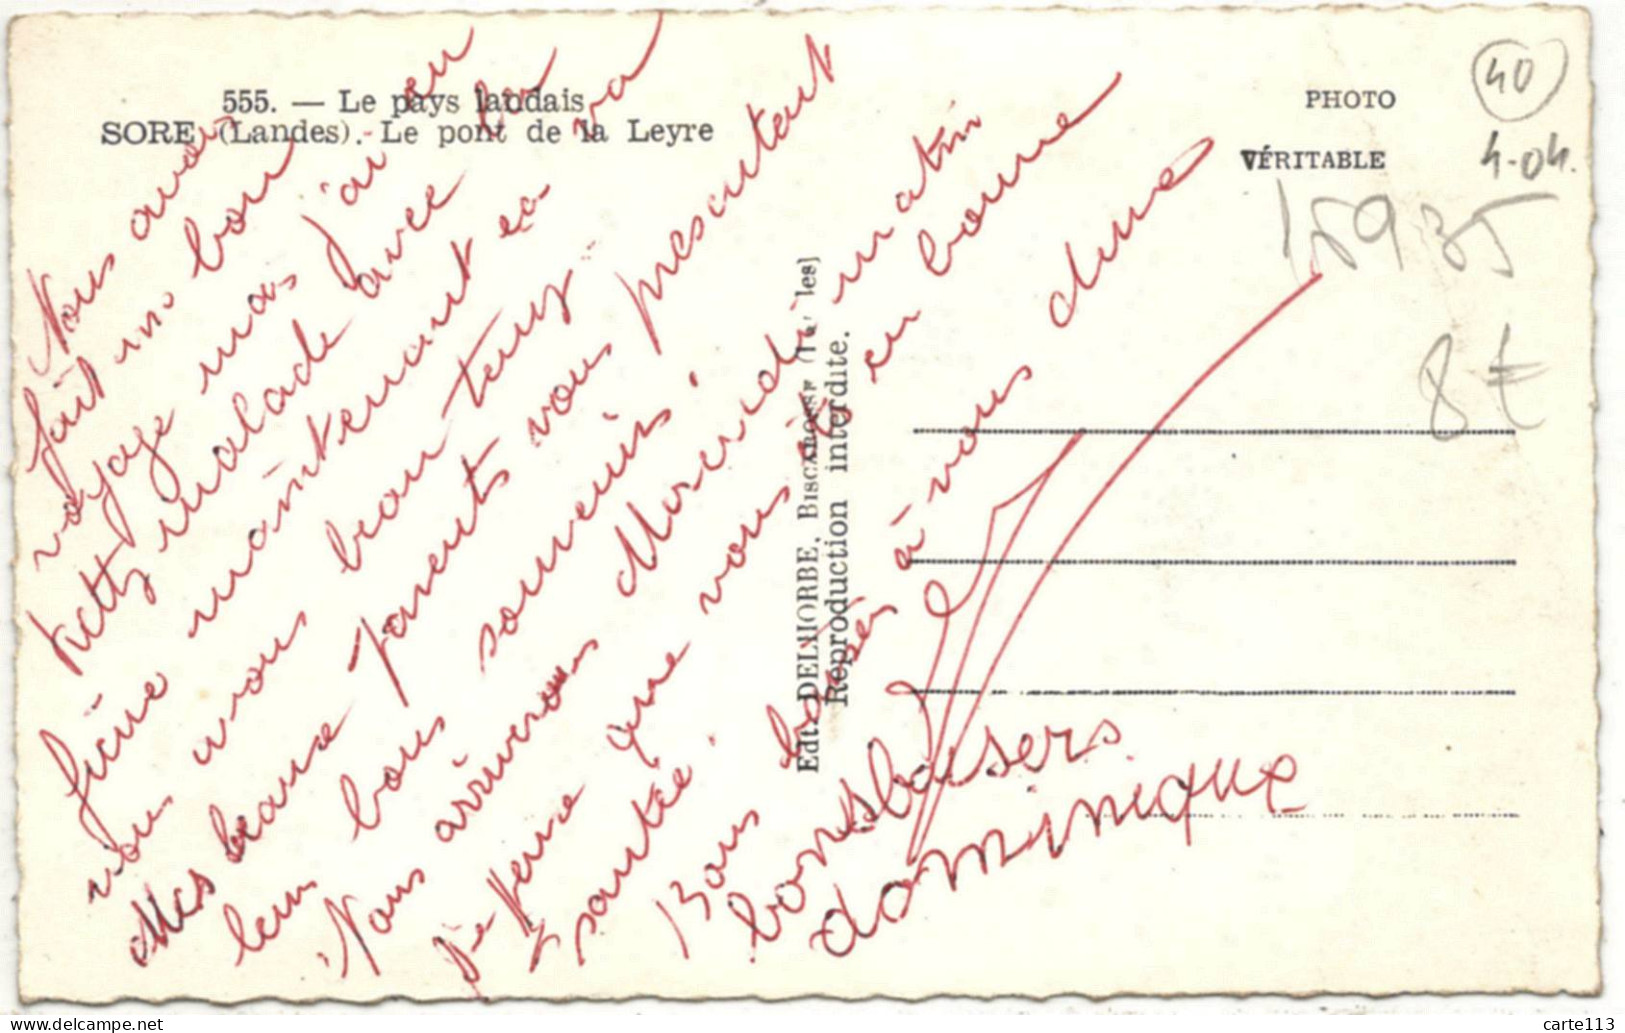 555. — Le pays landais
SORE (Landes).- Le pont de la Leyre
PHOTO
VÉRITABLE
40
4-04.
15935
8€
Edit. DELMORBE, BISCAROSSE (Landes)
Reproduction interdite.
Nous avons
fait un bon
voyage mais j'ai eu
Ketty malade avec la
fièvre maintenant ça va
nous avons bon temps
Mes beaux parents vous présentent
leur bons souvenirs.
Nous arriverons Mercredi matin
je pense que vous êtes en bonne
santé.
Bons baisers à vous deux
bons baisers
dominique
carte113